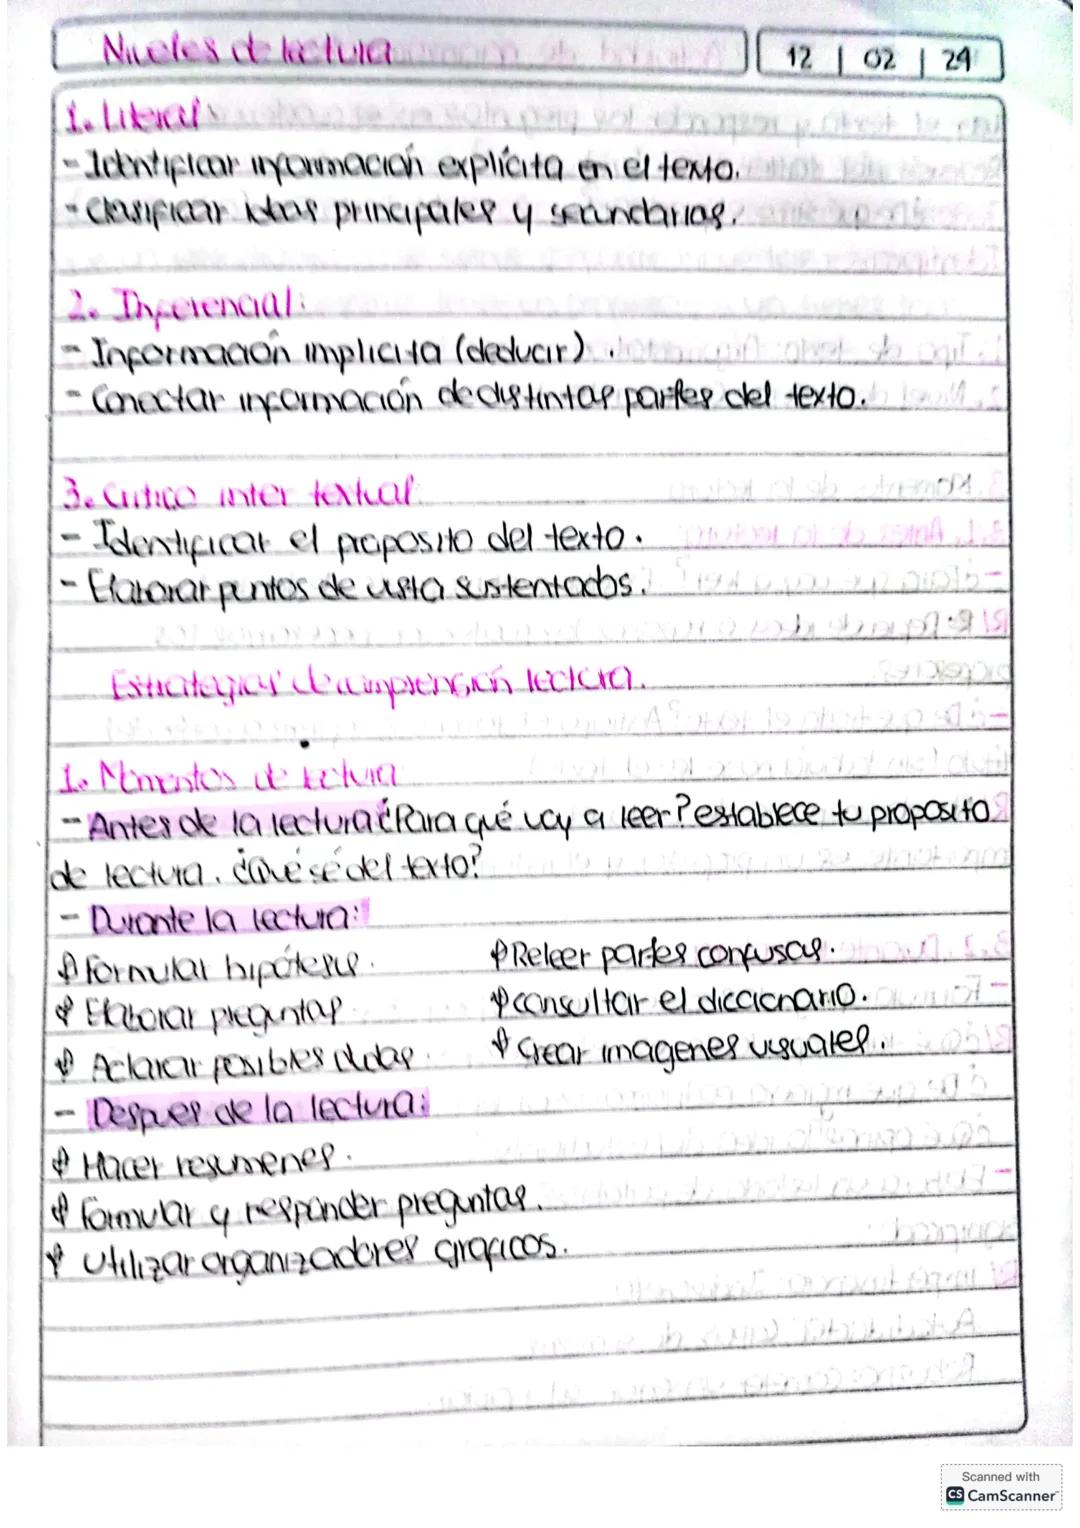 Niveles de lectura 12 | 02 | 24
1. Literal
- Identificar información explícita en el texto.
- Clasificar ideas principales y secundarias.
2. Inferencial:
- Información implicita (deducir).
- Conectar información de distintas partes del texto.
3. Critico inter textual
- Identificar el proposito del texto.
- Elaborar puntos de vista sustentados.
Estrategias de comprensión lectora.
1. Momentos de lectura
- Antes de la lectura ¿Para qué voy a leer? establece tu proposito
de lectura. ¿Qué sé del texto?
- Durante la lectura:
Formular hipótesis. Releer partes confusas.
Elaborar preguntas consultar el diccionario.
Aclarar posibles dudas. Crear imagenes visuales.
- Despues de la lectura:
Hacer resumenes.
formular y responder preguntas.
utilizar organizadores graficos.
Scanned with
CS CamScanner